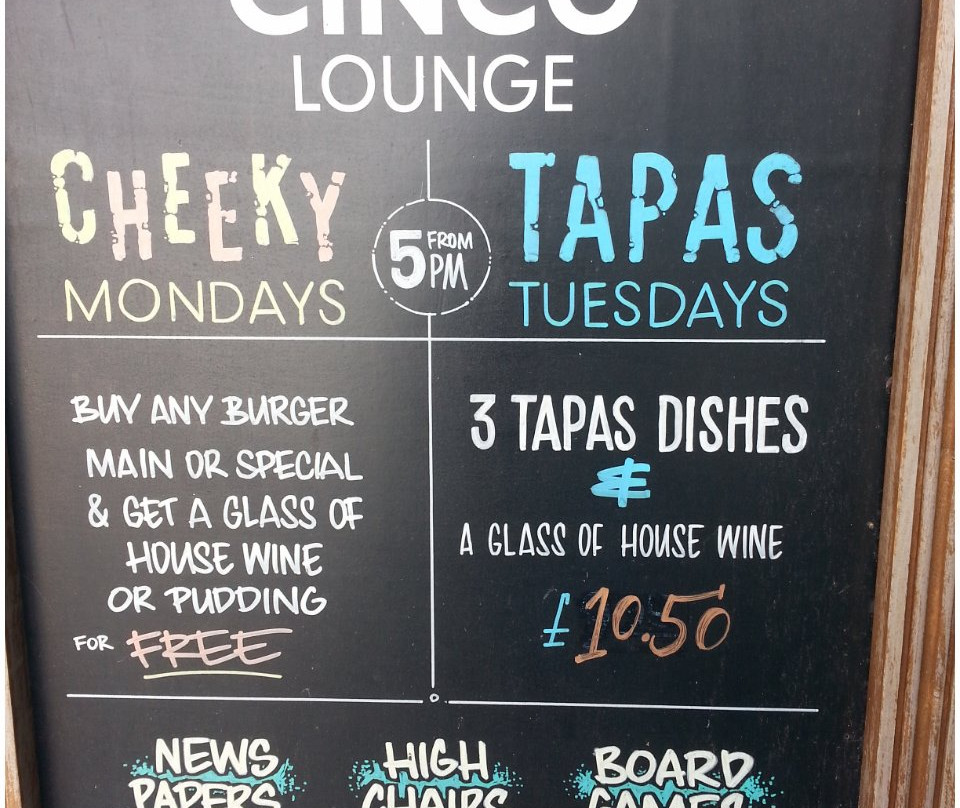 CINCO
LOUNGE
CHEEKY
MONDAYS
5 FROM
PM
TAPAS
TUESDAYS
BUY ANY BURGER
MAIN OR SPECIAL
& GET A GLASS OF
HOUSE WINE
OR PUDDING
FOR FREE
3 TAPAS DISHES
&
A GLASS OF HOUSE WINE
£10.50
NEWS
PAPERS
HIGH
CHAIRS
BOARD
GAMES